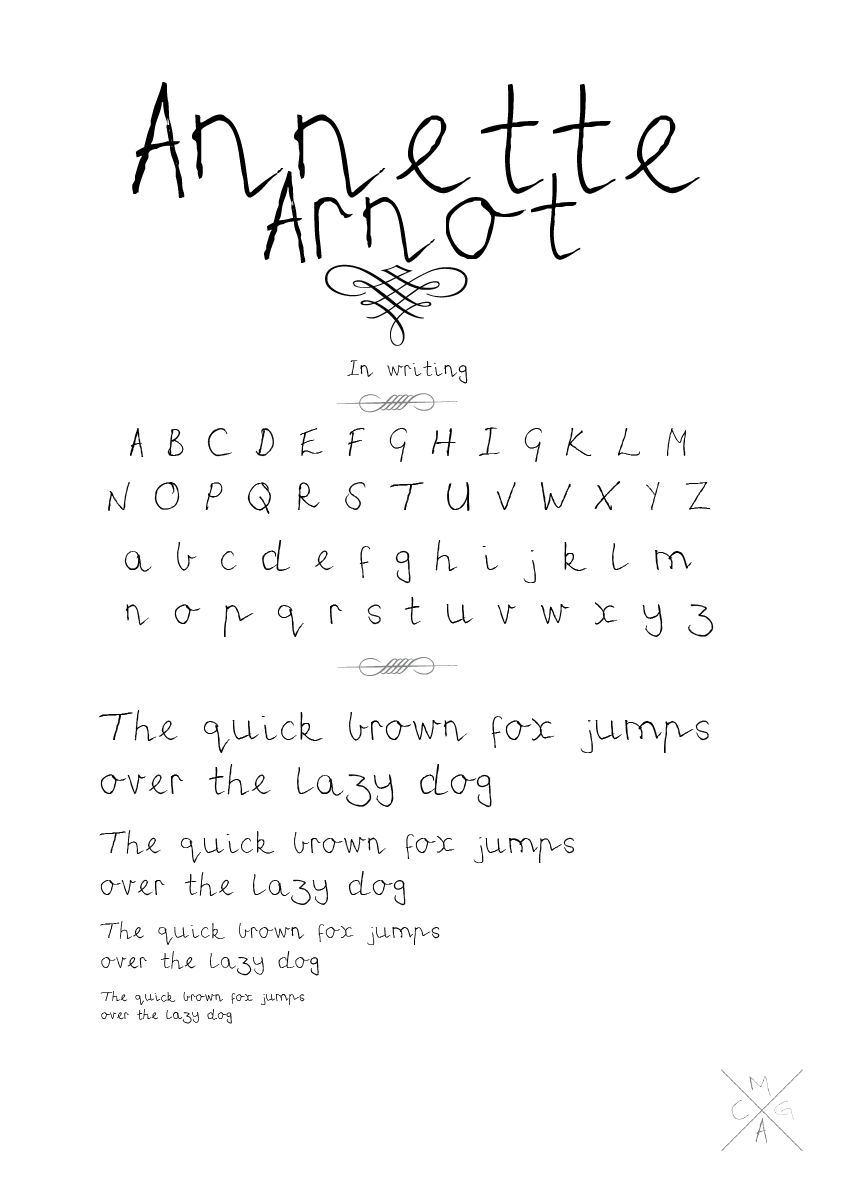 Annette
Arnot
In writing
A B C D E F G H I G K L M
N O P Q R S T U V W X Y Z
a b c d e f g h i j k l m
n o p q r s t u v w x y z
The quick brown fox jumps
over the lazy dog
The quick brown fox jumps
over the lazy dog
The quick brown fox jumps
over the lazy dog
The quick brown fox jumps
over the lazy dog
M
C G
A